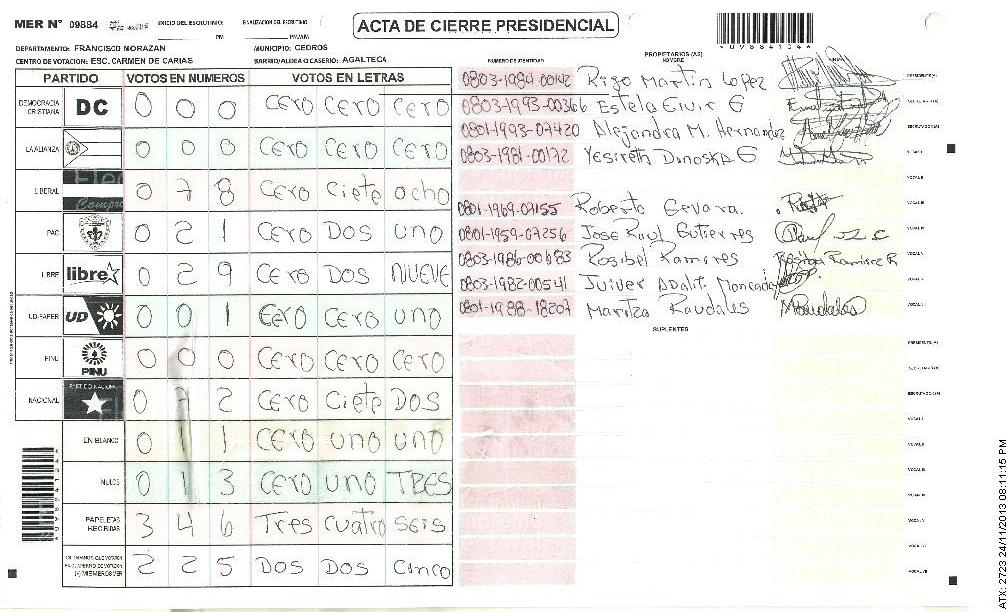 MER N° 09884 INICIO DEL ESCRUTINIO: PM FINALIZACION DEL ESCRUTINIO PM/AM ACTA DE CIERRE PRESIDENCIAL
DEPARTAMENTO: FRANCISCO MORAZAN MUNICIPIO: CEDROS
CENTRO DE VOTACION: ESC. CARMEN DE CARIAS BARRIO/ALDEA O CASERIO: AGALTECA
PARTIDO VOTOS EN NUMEROS VOTOS EN LETRAS
DEMOCRACIA CRISTIANA DC 0 0 0 Cero Cero Cero
LA ALIANZA 0 0 0 Cero Cero Cero
LIBERAL 0 7 8 Cero Ciete ocho
PAC 0 2 1 Cero Dos uno
LIBRE libre 0 2 9 Cero Dos NIUEVE
UD-FAPER UD 0 0 1 Cero Cero uno
PINU PINU 0 0 0 Cero Cero Cero
NACIONAL PARTIDO NACIONAL 0 7 2 Cero Ciete Dos
EN BLANCO 0 1 1 Cero uno uno
NULOS 0 1 3 Cero uno TRES
PAPELETAS RECIBIDAS 3 4 6 Tres cuatro seis
2 2 5 Dos Dos Cinco
NUMERO DE IDENTIDAD PROPIETARIOS (AS) NOMBRE FIRMA
0803-1984-00142 Rigo Martin Lopez PRESIDENTE(A)
0803-1993-00366 Estela Givir G SECRETARIO(A)
0801-1993-07420 Alejandra M. Hernandez ESCRUTADOR(A)
0803-1981-00172 Yesireth Dinoska G VOCAL I
VOCAL II
0801-1969-07155 Roberto Gevara. VOCAL III
0801-1959-07256 Jose Raul Gutierres VOCAL IV
0803-1986-00683 Rosibel Ramires VOCAL V
0803-1982-00541 Juiver Adalit Moncada
0801-1988-18207 Maritza Raudales
SUPLENTES
PRESIDENTE(A)
SECRETARIO(A)
ESCRUTADOR(A)
VOCAL I
VOCAL II
VOCAL III
VOCAL IV
VOCAL V
VOCAL VI
VOCAL VII
ATX: 2723 24/11/2013 08:11:15 PM